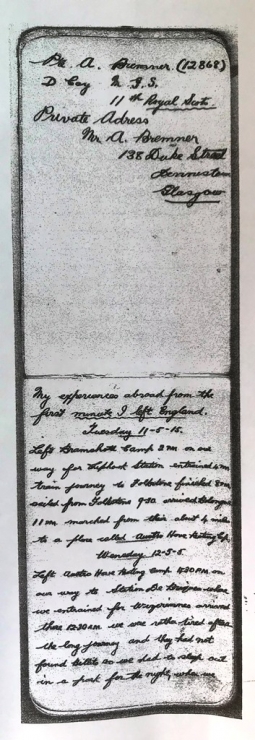 Pte A. Bremner. (12868)
D Coy M. G. S.
11th Royal Scots.
Private Adress
Mr A. Bremner
138 Duke Street
Dennistoun
Glasgow
My experiences abroad from the
first minute I left England.
Tuesday 11-5-15.
Left Bramshott Camp 2 PM on our
way for Liphook Station entrained 4 PM
train journey to Folkstone finished 8 PM
sailed from Folkstone 9.30 arrived
11 PM marched from their about 4 miles
to a place called Hove Resting Camp.
Wensday 12-5-5
Left Hove Resting Camp PM on
our way to Station De where
we entrained for arrived
there 12.30 AM we was rather tired after
the long journey and they had not
found billets so we had to sleep out
in a park for the night, when we